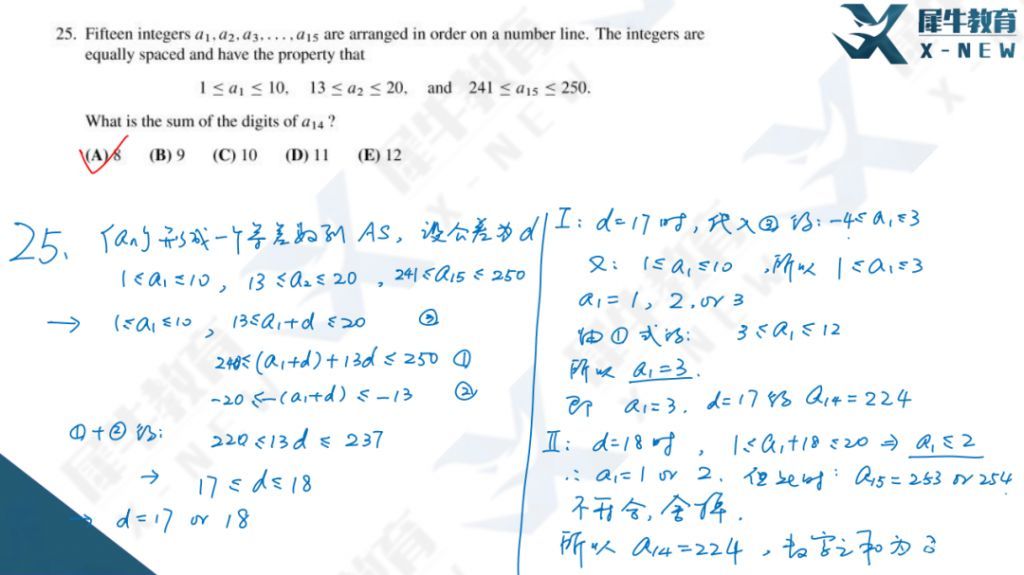 犀牛教育
X-NEW
25. Fifteen integers a₁, a₂, a₃, . . . , a₁₅ are arranged in order on a number line. The integers are
equally spaced and have the property that
1 ≤ a₁ ≤ 10, 13 ≤ a₂ ≤ 20, and 241 ≤ a₁₅ ≤ 250.
What is the sum of the digits of a₁₄ ?
(A) 8 (B) 9 (C) 10 (D) 11 (E) 12
25. {an} 形成一个等差数列 AS, 设公差为d
1≤a₁≤10, 13≤a₂≤20, 241≤a₁₅≤250
→ 1≤a₁≤10, 13≤a₁+d≤20 ③
240≤(a₁+d)+13d≤250 ①
-20≤-(a₁+d)≤-13 ②
①+②得: 220≤13d≤237
→ 17≤d≤18
→ d=17 or 18
I: d=17时, 代入③得: -4≤a₁≤3
又: 1≤a₁≤10, 所以 1≤a₁≤3
a₁=1, 2, or 3
由①式得: 3≤a₁≤12
所以 a₁=3.
即 a₁=3. d=17 得 a₁₄=224
II: d=18时, 1≤a₁+18≤20 ⇒ a₁≤2
∴ a₁=1 or 2. 但此时: a₁₅=253 or 254
不符合, 舍掉.
所以 a₁₄=224, 数字之和为8